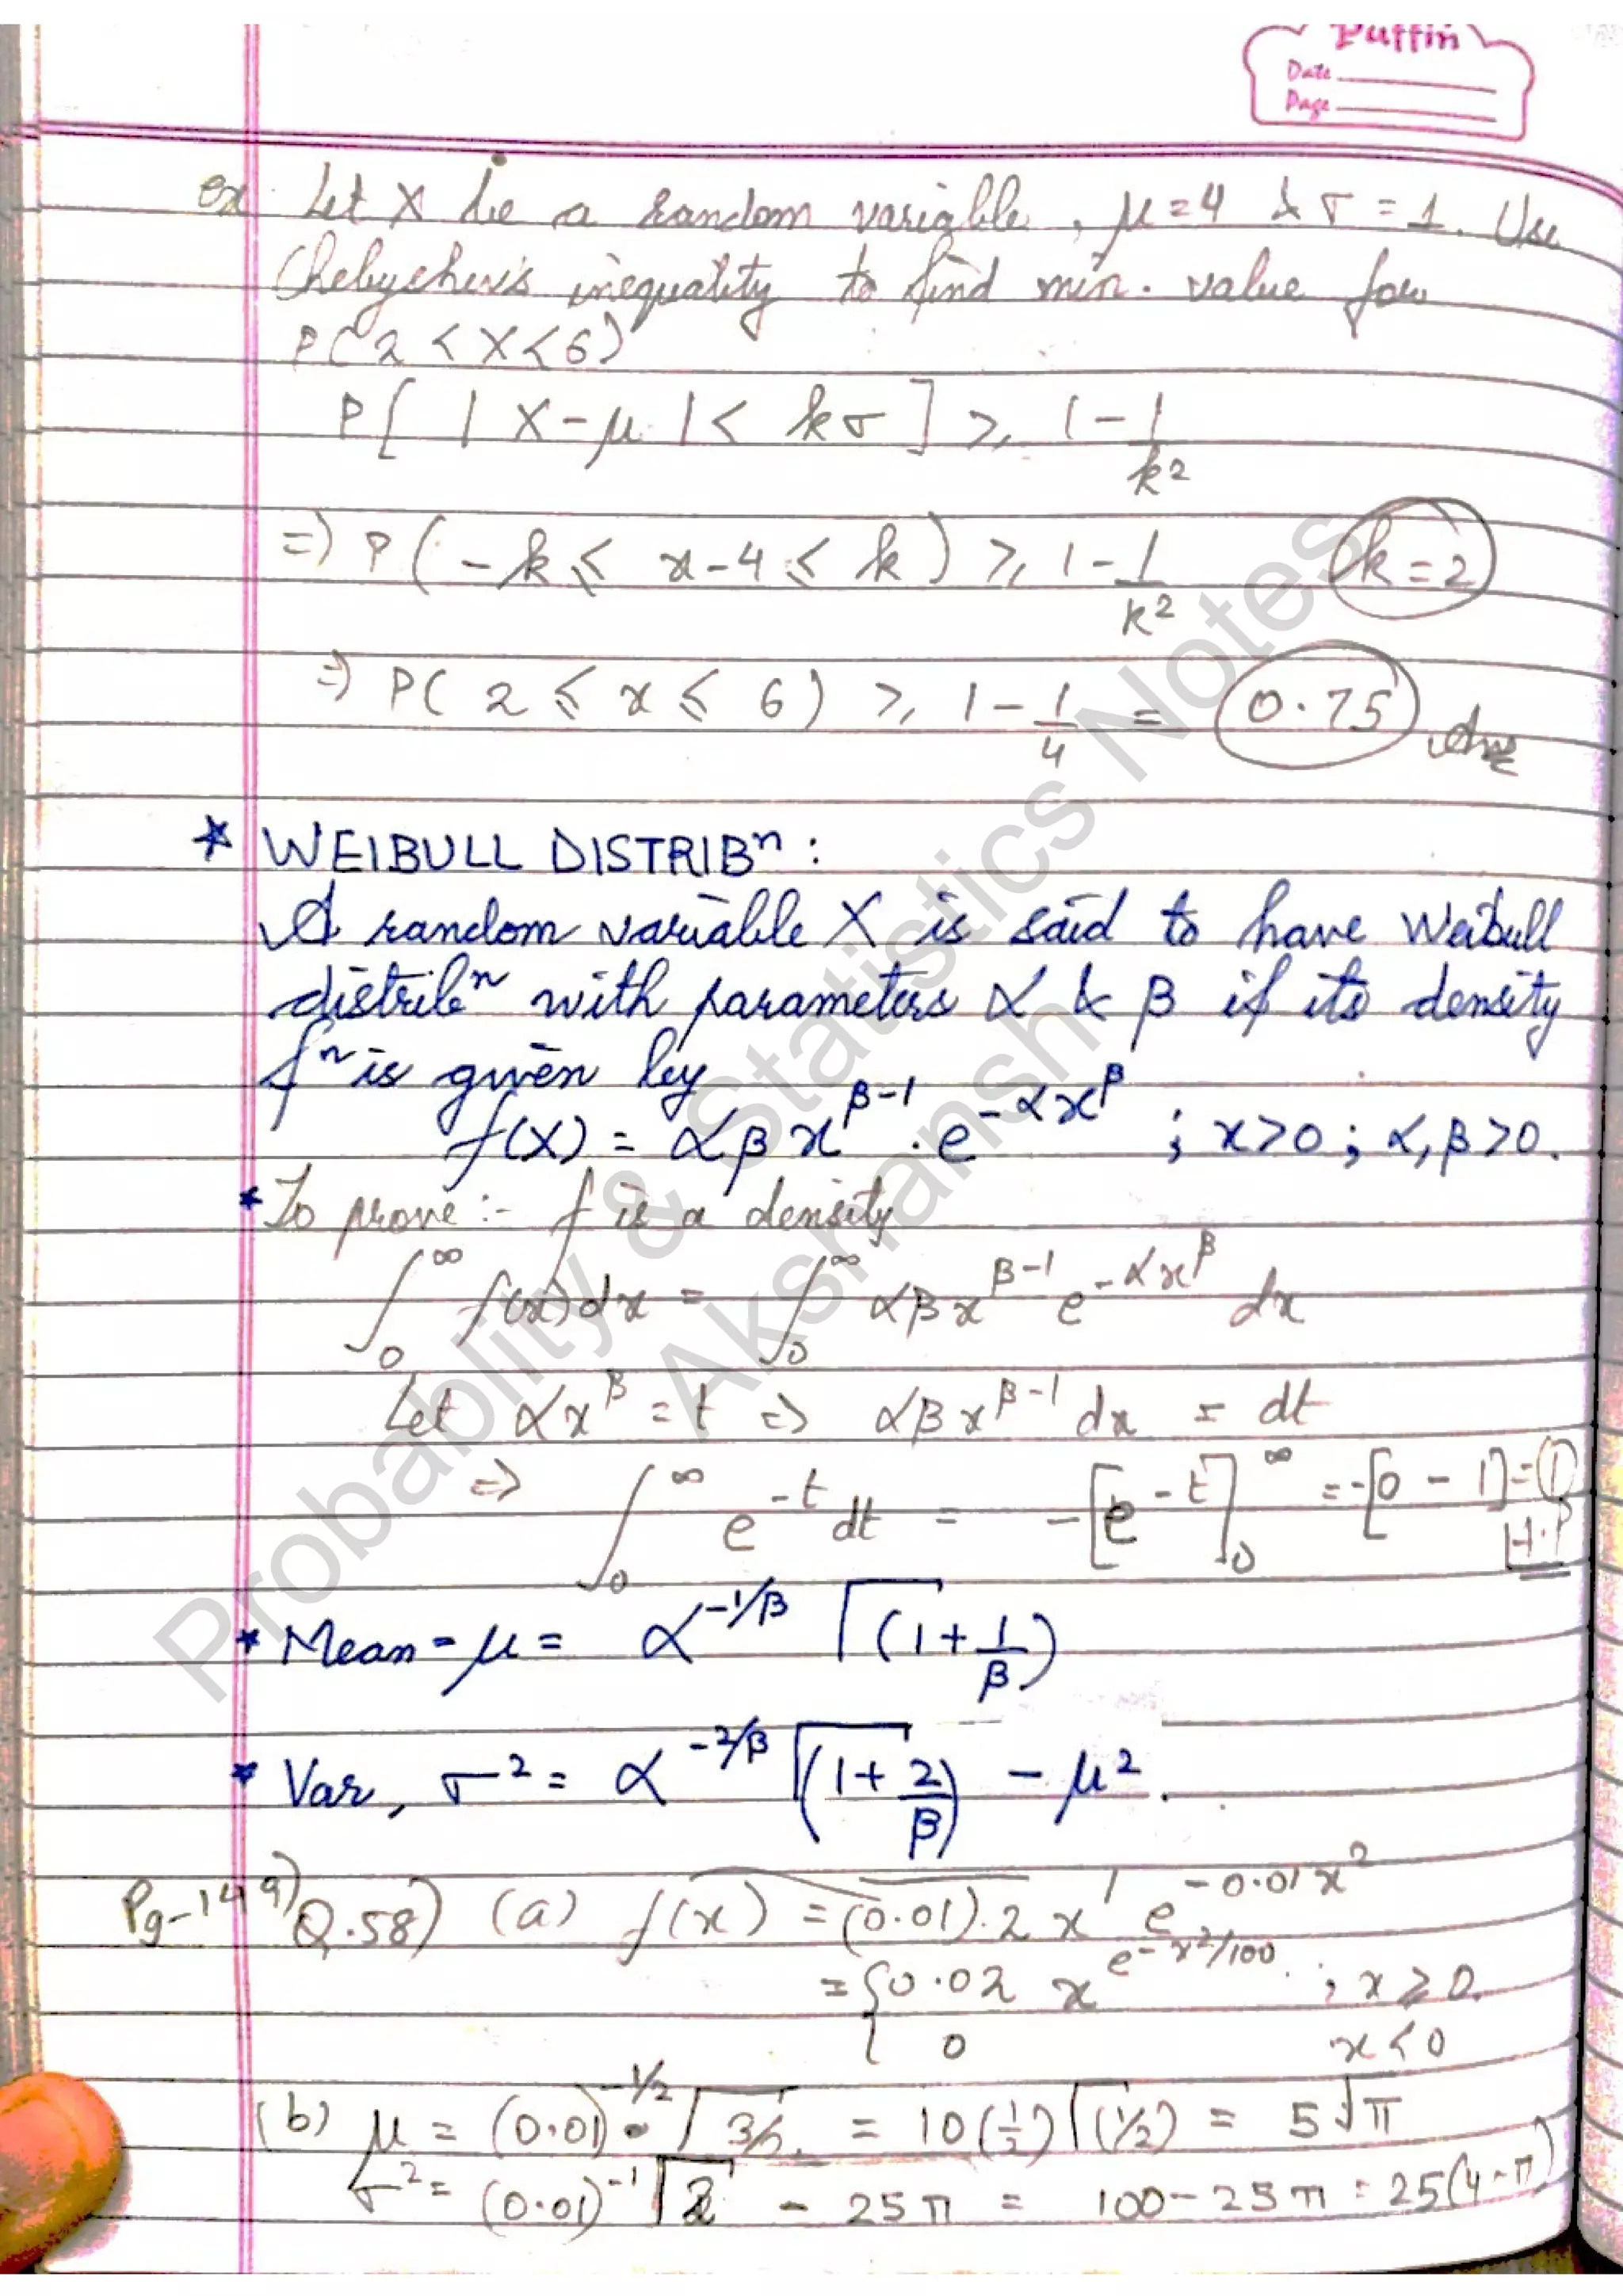 Puffin
Date
Page
ex. Let X be a random variable, μ=4 & σ=1. Use
Chebychev's inequality to find min. value for
P(2<X<6)
P[ |X-μ| < kσ ] ≥ 1-1/k²
=) P(-k ≤ x-4 ≤ k) ≥ 1-1/k² k=2
=) P(2 ≤ x ≤ 6) ≥ 1-1/4 = 0.75 Ans
* WEIBULL DISTRIBⁿ:
A random variable X is said to have Weibull
distribⁿ with parameters α & β if its density
fⁿ is given by
f(X) = αβx^(β-1) · e^(-αx^β) ; x>0 ; α, β>0.
* To prove:- f is a density
∫₀^∞ f(x)dx = ∫₀^∞ αβx^(β-1) e^(-αx^β) dx
Let αx^β = t => αβx^(β-1) dx = dt
=> ∫₀^∞ e^(-t) dt = -[e^(-t)]₀^∞ = -[0-1] = 1
H.P
* Mean = μ = α^(-1/β) Γ(1+1/β)
* Var, σ² = α^(-2/β) Γ(1+2/β) - μ².
Pg-149) Q.58) (a) f(x) = (0.01).2 x^1 e^(-0.01x²)
= { 0.02 x e^(-x²/100) ; x ≥ 0.
{ 0 x < 0
(b) μ = (0.01)^(-1/2) Γ3/2 = 10(1/2)Γ(1/2) = 5√π
σ² = (0.01)^(-1) Γ2 - 25π = 100-25π = 25(4-π)
Probablity & Statistics Notes
Akshansh